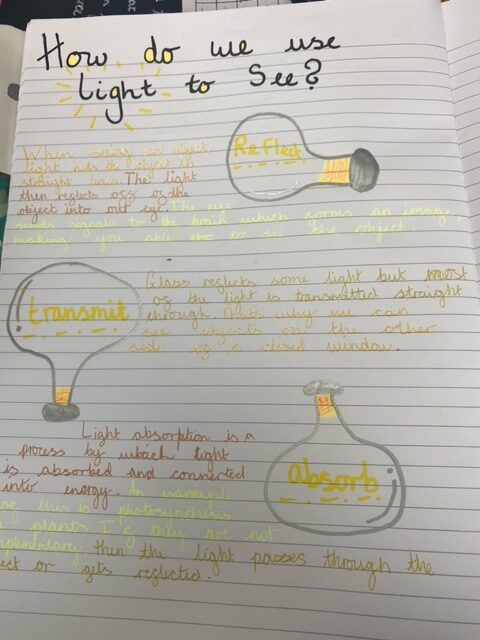 How do we use
Light to See?
When seeing an object,
light hits the object in
straight lines. The light
then reflects off of the
object into our eye. The eye
sends signals to the brain which forms an image,
making you able to see the object.
Reflect
Glass reflects some light but most
of the light is transmitted straight
through. Thats why we can
see objects on the other
side of a closed window.
transmit
Light absorption is a
process by which light
is absorbed and converted
into energy. An example
this is photosynthesis
plants. If they are not
then the light passes through the
or gets reflected.
absorb